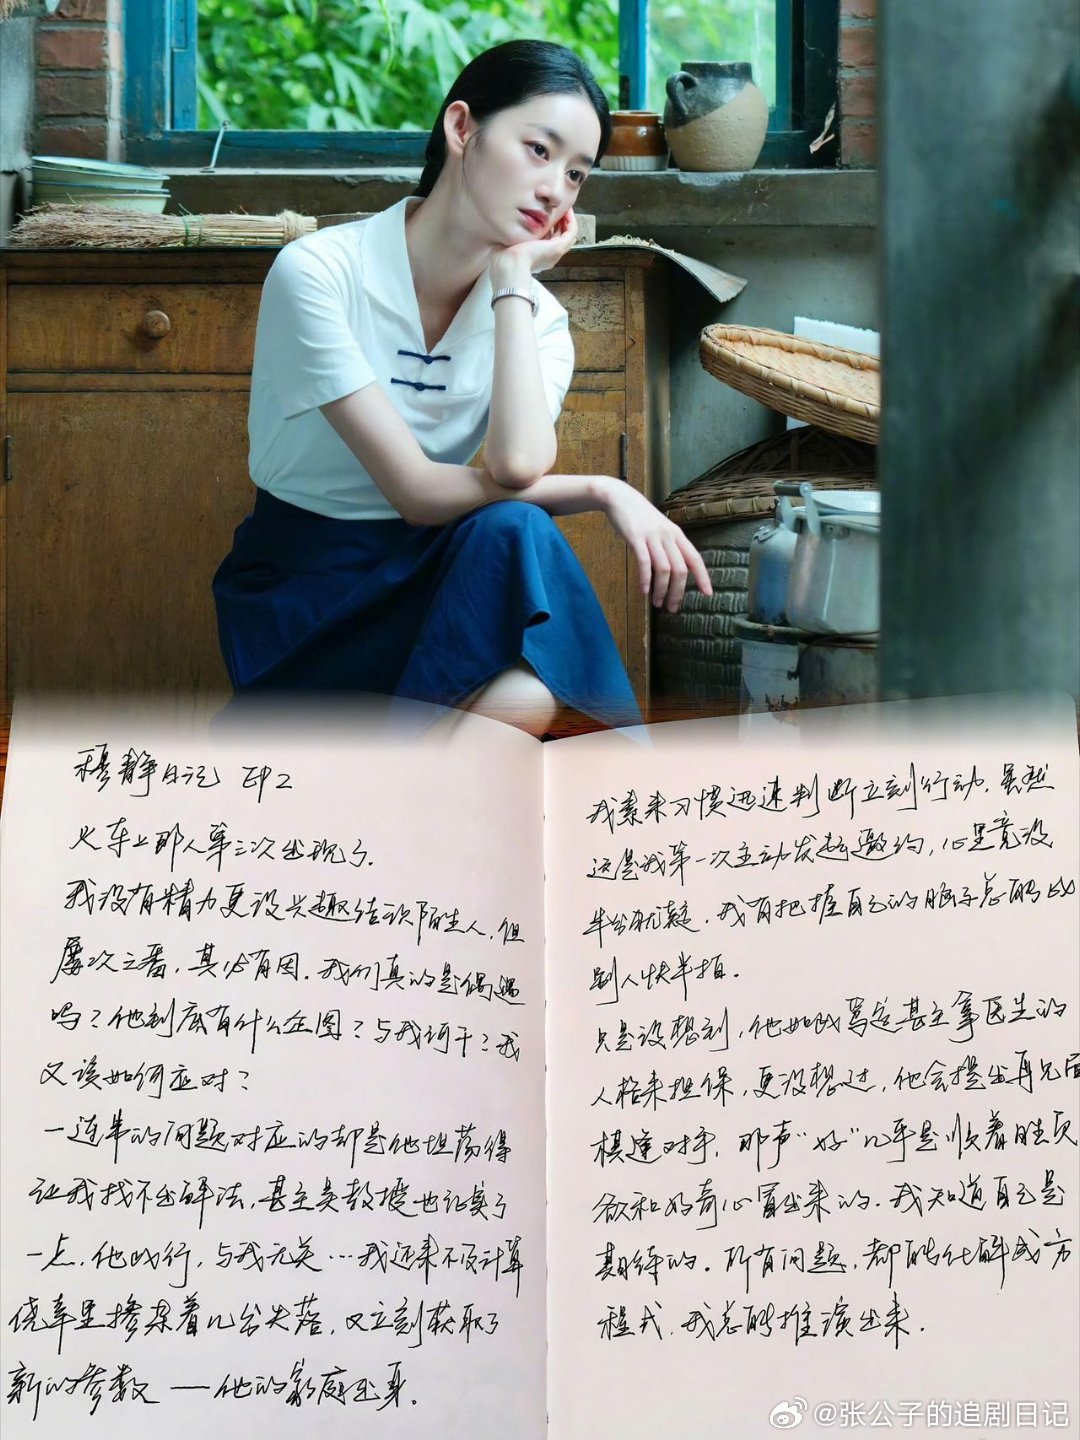 穆静日记 EP2
火车上那人第三次出现了.
我没有精力更没兴趣结识陌生人,但
屡次三番,其必有因.我们真的是偶遇
吗?他到底有什么企图?与我何干?我
又该如何应对?
一连串的问题对应的却是他坦荡得
让我找不出解法,甚至吴教授也证实了
一点.他此行,与我无关…我还来不及计算
侥幸里掺杂着几分失落,又立刻获取了
新的参数 —— 他的家庭出身.
我素来习惯迅速判断立刻行动.虽然
这是我第一次主动发起邀约,心里竟没
半分犹疑.我有把握自己的脑子总能比
别人快半拍.
只是没想到,他如此笃定甚至拿医生的
人格来担保,更没想过,他会提出再见面
棋逢对手.那声“好”几乎是顺着胜负
欲和好奇心冒出来的.我知道自己是
期待的.所有问题,都能化解成方
程式.我总能推演出来.
@张公子的追剧日记